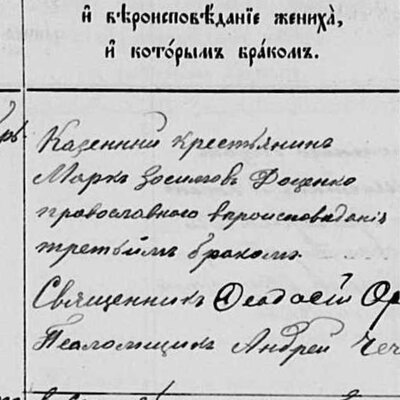 и҆ вѣроисповѣданіе жениха̀,
и҆ которымъ бракомъ.
Казенный крестьянинъ
Маркъ Зосимовъ Доценко
православнаго вѣроисповѣданія
третьимъ бракомъ.
Священникъ Ѳеодосій Ор
Псаломщикъ Андрей Чеч